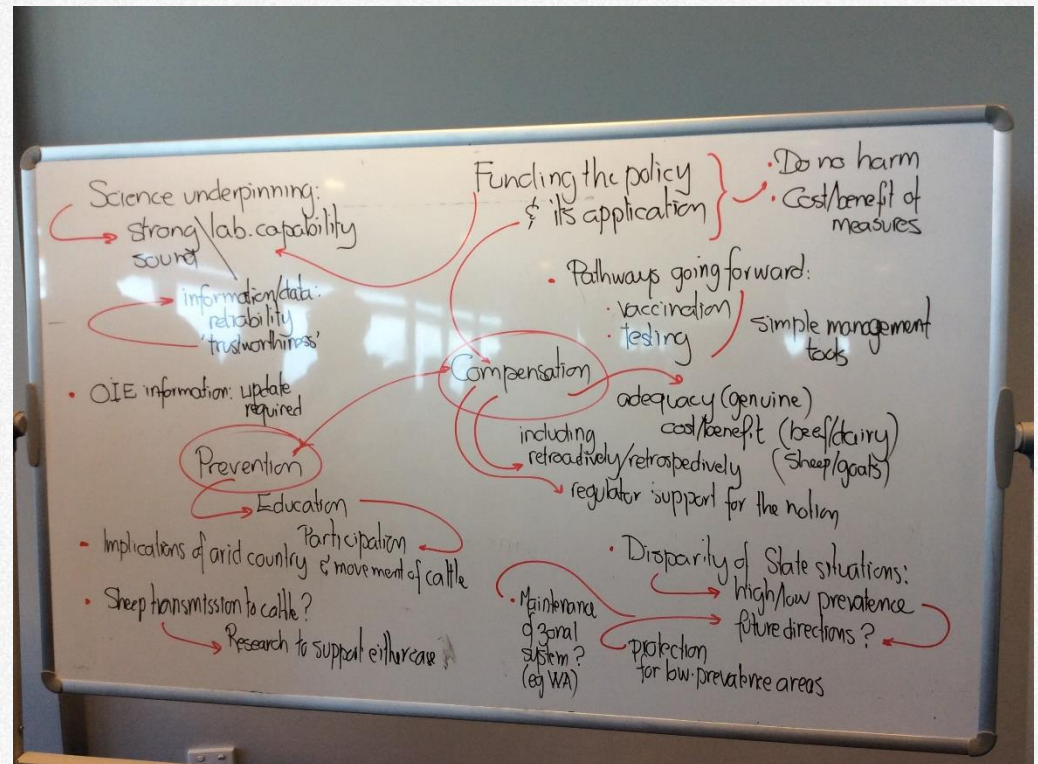 Science underpinning:
strong lab. capability
sound
information/data:
reliability
'trustworthiness'
• OIE information: update
required
Prevention
Education
Participation
- Implications of arid country & movement of cattle
• Sheep transmission to cattle?
Research to support either case
Funding the policy
& its application
• Do no harm
• Cost/benefit of
measures
• Pathways going forward:
• vaccination
• testing
simple management
tools
Compensation
adequacy (genuine)
cost/benefit (beef/dairy)
(sheep/goats)
including
retroactively/retrospectively
regulator support for the notion
• Disparity of State situations:
high/low prevalence
future directions?
• Maintenance
of zonal
system?
(eg WA)
protection
for low-prevalence areas